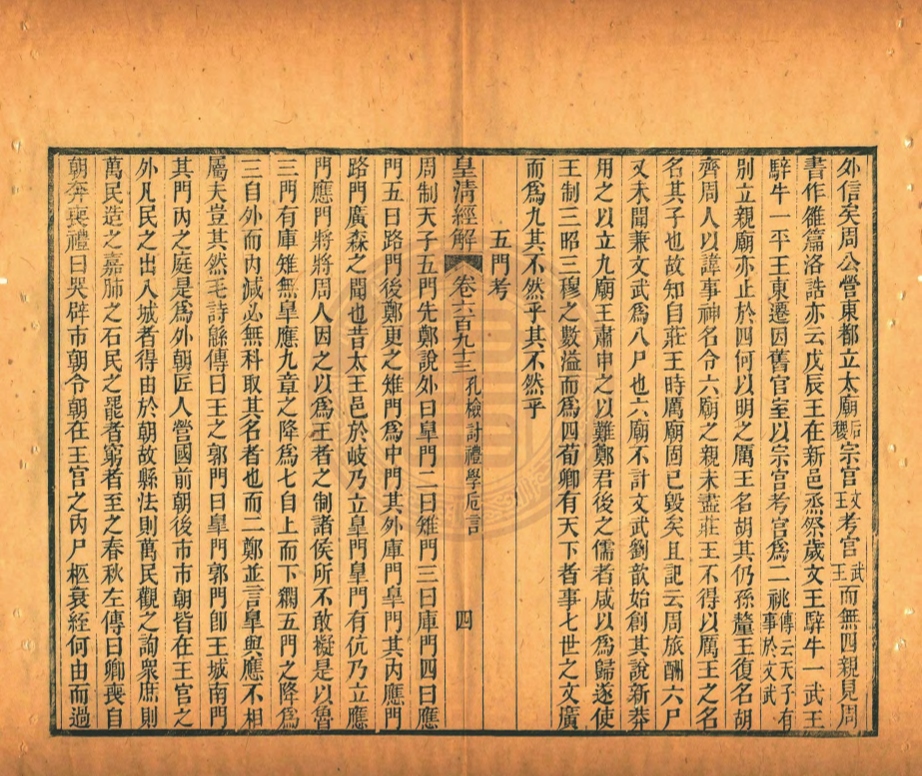 外信矣周公營東都立太廟后稷宗宮文王考宮武王而無四親見周
書作雒篇洛誥亦云戊辰王在新邑烝祭歲文王騂牛一武王
騂牛一平王東遷因舊宮室以宗宮考宮爲二祧傳云天子有二祧事於文武
別立親廟亦止於四何以明之厲王名胡其仍孫釐王復名胡
齊周人以諱事神名令六廟之親未盡莊王不得以厲王之名
名其子也故知自莊王時厲廟固已毀矣且記云周旅酬六尸
又未聞兼文武爲八尸也六廟不計文武劉歆始創其說新莽
用之以立九廟王肅申之以難鄭君後之儒者咸以爲歸遂使
王制三昭三穆之數溢而爲四荀卿有天下者事七世之文廣
而爲九其不然乎其不然乎
五門考
皇清經解 卷六百九十三 孔檢討禮學卮言 四
周制天子五門先鄭說外曰皐門二曰雉門三曰庫門四曰應
門五曰路門後鄭更之雉門爲中門其外庫門皐門其内應門
路門廣森之聞也昔太王邑於岐乃立皇門皇門有伉乃立應
門應門將將周人因之以爲王者之制諸侯所不敢擬是以魯
三門有庫雉無皐應九章之降爲七自上而下襉五門之降爲
三自外而内減必無科取其名者也而二鄭並言皐與應不相
屬夫豈其然毛詩緜傳曰王之郭門曰皐門郭門卽王城南門
其門内之庭是爲外朝匠人營國前朝後市市朝皆在王宮之
外凡民之出入城者得由於朝故縣法則萬民觀之詢衆庶則
萬民造之嘉肺之石民之罷者窮者至之春秋左傳曰卿喪自
朝奔喪禮曰哭辟市朝令朝在王宮之内尸柩衰絰何由而過